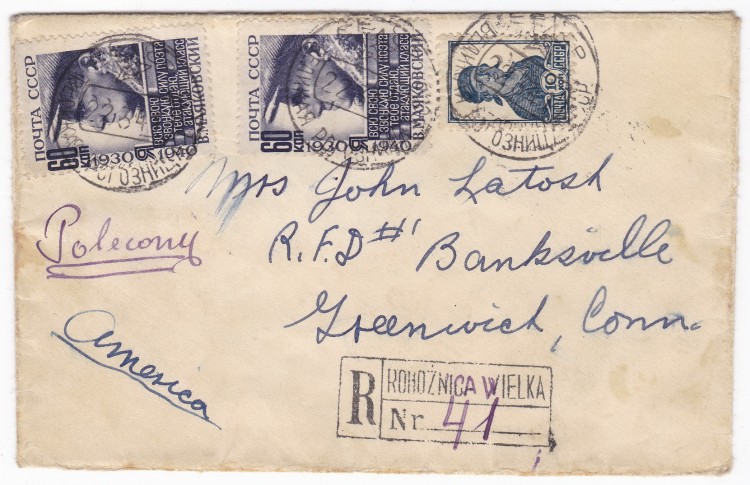 ПОЧТА СССР
60 КОП
ВСЮ СВОЮ
ЗВОНКУЮ СИЛУ ПОЭТА
ТЕБЕ ОТДАЮ,
АТАКУЮЩИЙ КЛАСС
В.МАЯКОВСКИЙ
1930 1940
ПОЧТА СССР
60 КОП
ВСЮ СВОЮ
ЗВОНКУЮ СИЛУ ПОЭТА
ТЕБЕ ОТДАЮ,
АТАКУЮЩИЙ КЛАСС
В.МАЯКОВСКИЙ
1930 1940
10
ПОЧТА СССР
Mrs John Latosh
Polecony
R.F.D #1 Banksville
Greenwich, Conn.
America
R ROHOŹNICA WIELKA
Nr. 41